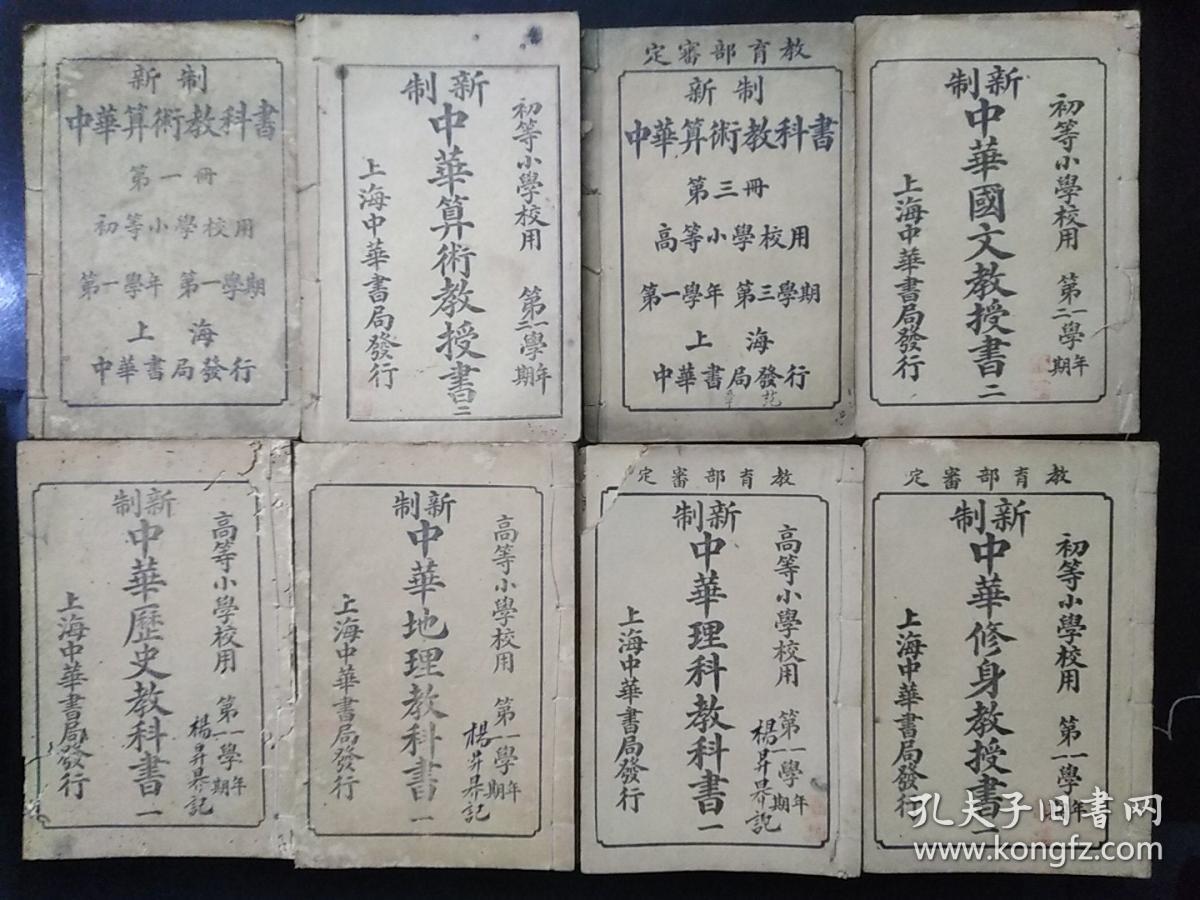 新制
中華算術教科書
第一冊
初等小學校用
第一學年 第一學期
上海
中華書局發行
初等小學校用 第一學年
第二學期
新制
中華算術教授書 二
上海中華書局發行
教育部審定
新制
中華算術教科書
第三冊
高等小學校用
第一學年 第三學期
上海
中華書局發行
初等小學校用 第一學年
第二學期
新制
中華國文教授書 二
上海中華書局發行
高等小學校用 第一學年
第一學期
新制
中華歷史教科書 一
上海中華書局發行
高等小學校用 第一學年
第一學期
新制
中華地理教科書 一
上海中華書局發行
教育部審定
高等小學校用 第一學年
第一學期
新制
中華理科教科書 一
上海中華書局發行
教育部審定
初等小學校用 第一學年
新制
中華修身教授書 一
上海中華書局發行
孔夫子旧书网
www.kongfz.com